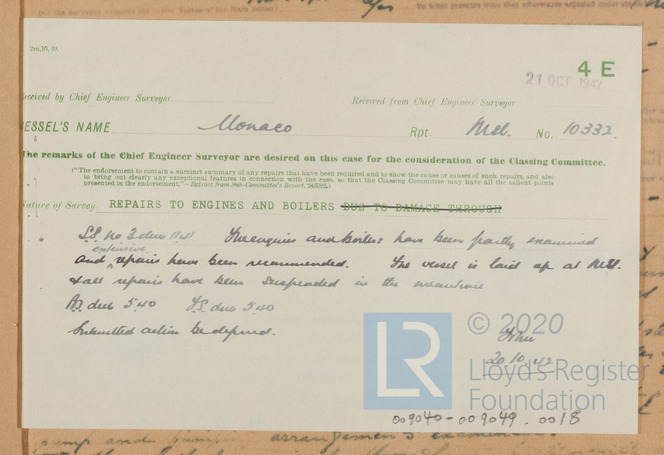 2m,10,39.
4 E
21 OCT 1942
Received by Chief Engineer Surveyor
Received from Chief Engineer Surveyor
VESSEL'S NAME Monaco Rpt. Mel. No. 10332.
The remarks of the Chief Engineer Surveyor are desired on this case for the consideration of the Classing Committee.
("The endorsement to contain a succinct summary of any repairs that have been required and to show the cause or causes of such repairs, and also
to bring out clearly any exceptional features in connection with the case, so that the Classing Committee may have all the salient points
presented in the endorsement."—Extract from Sub-Committee's Report,
Nature of Survey REPAIRS TO ENGINES AND BOILERS DUE TO DAMAGE THROUGH
S.S. No 3 due 11.41 The engines and boilers have been partly examined
extensive
and repairs have been recommended. The vessel is laid up at Mel.
& all repairs have been suspended in the meantime
B.S. due 5.40 T.S. due 5.40
Submitted action be deferred.
20.10.42
LR
© 2020
Lloyd's Register
Foundation
009040-009049.0018